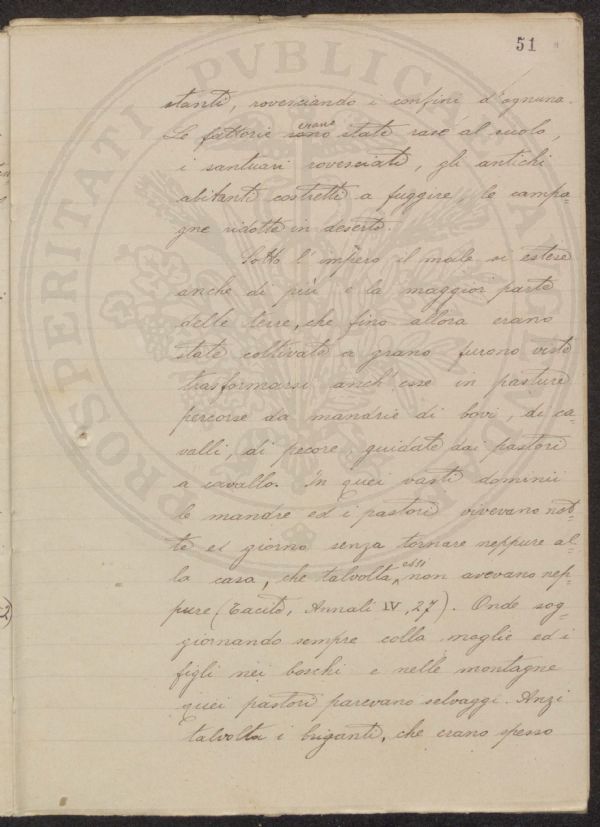 51
stanti, rovesciando i confini d'ognuna.
Le fattorie sono erano state rase al suolo,
i santuari rovesciati, gli antichi
abitanti costretti a fuggire, le campa=
gne ridotte in deserto.
Sotto l'impero il male si estese
anche di più e la maggior parte
delle terre, che fino allora erano
state coltivate a grano furono viste
trasformarsi anch'esse in pasture
percorse da mandrie di bovi, di ca=
valli, di pecore guidate dai pastori
a cavallo. In quei vasti dominii
le mandre ed i pastori vivevano not=
te ed giorno senza tornare neppure al=
la casa, che talvolta, essi non avevano nep=
pure (Tacito, Annali IV, 27). Onde sog=
giornando sempre colla moglie ed i
figli nei boschi e nelle montagne
quei pastori parevano selvaggi. Anzi
talvolta i briganti, che erano spesso
PROSPERITATI PVBLICAE AVGENDAE